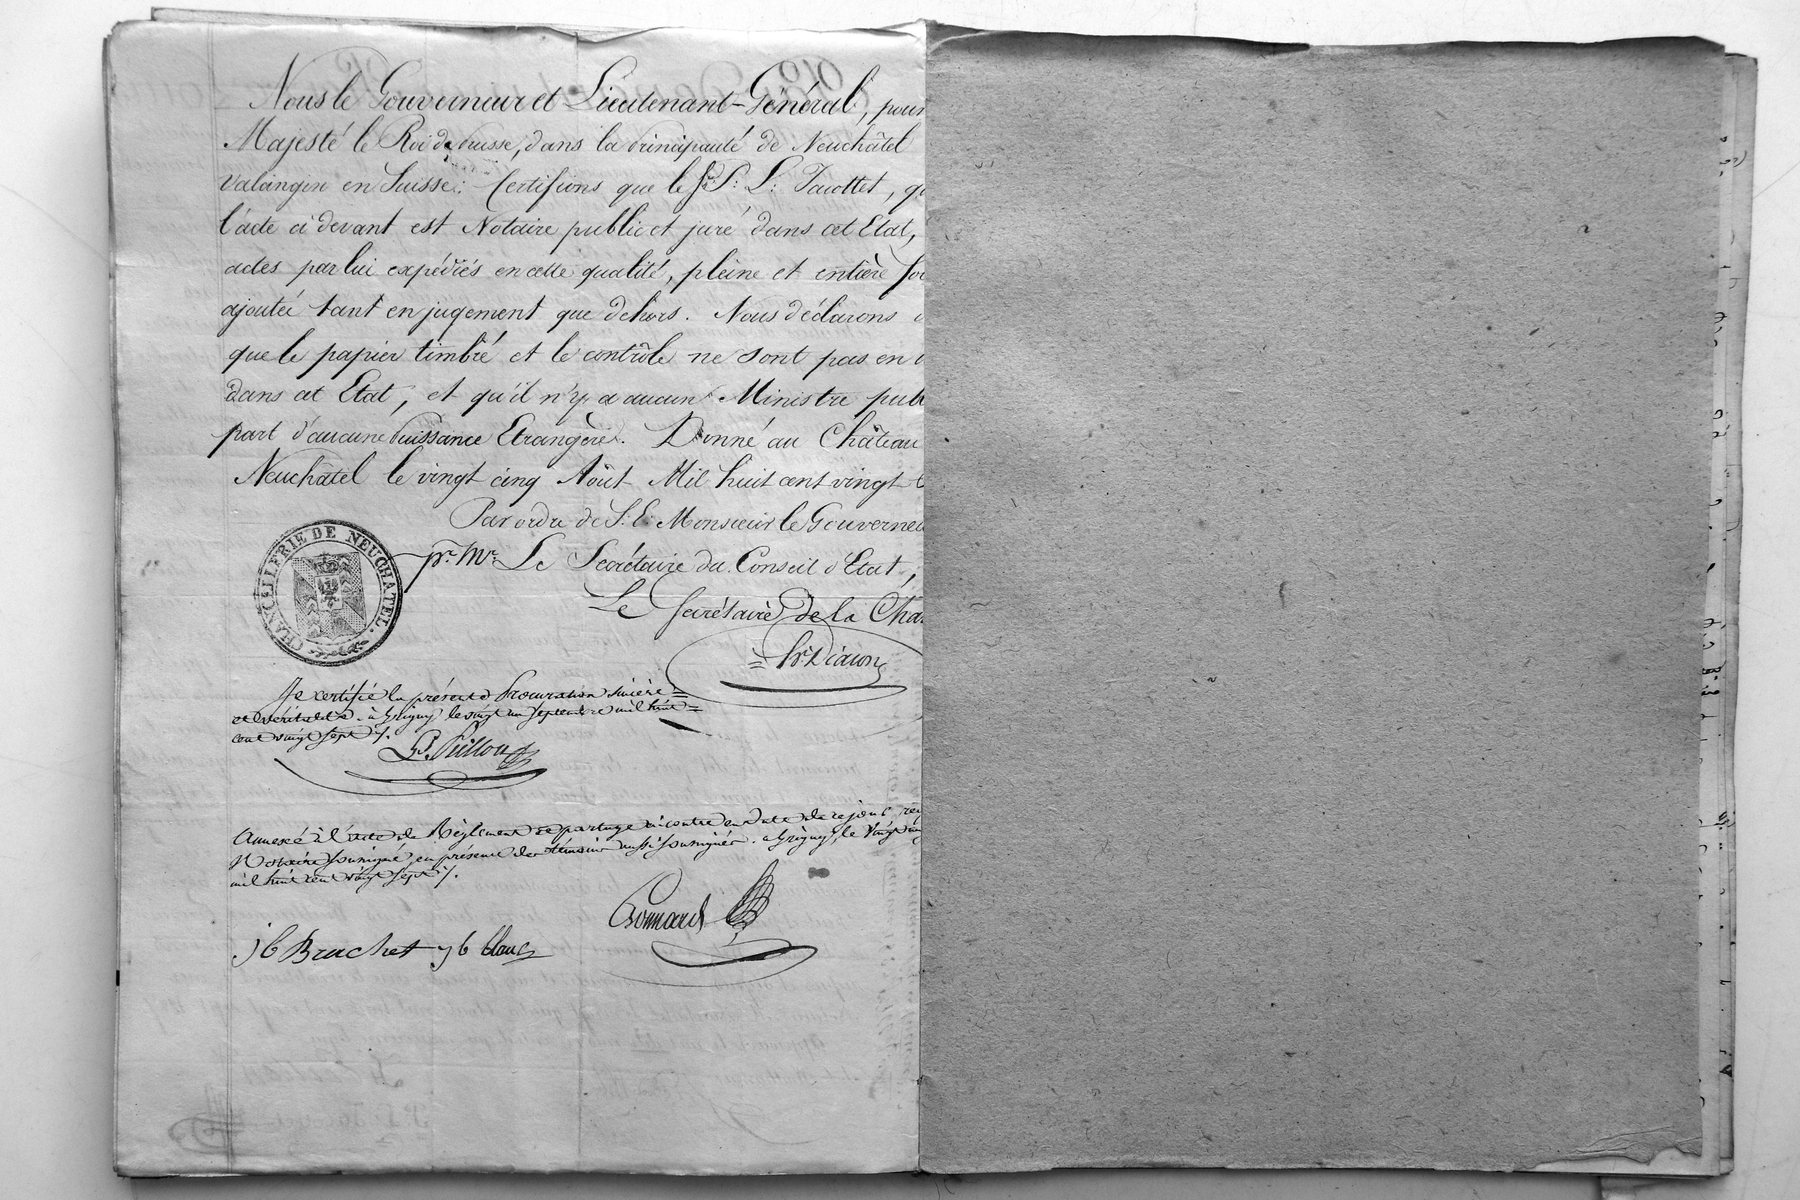 Nous le Gouverneur et Lieutenant-Général, pour
Majesté le Roi de Prusse, dans la Principauté de Neuchâtel
Valangin en Suisse: Certifions que le Sr. P: L: Jacottet, qu
l'acte ci devant est Notaire public et juré dans cet Etat,
actes par lui expédiés en cette qualité, pleine et entière foi
ajoutée tant en jugement que dehors. Nous déclarons
que le papier timbré et le contrôle ne sont pas en
dans cet Etat, et qu'il n'y a aucun Ministre publ
part d'aucune Puissance Etrangère. Donné au Château
Neuchâtel le vingt cinq Août Mil huit cent vingt
Par ordre de S: E: Monsieur le Gouverneu
pr. Mr. Le Secrétaire du Conseil d'Etat,
Le Secrétaire de la Cha
CHANCELLERIE DE NEUCHATEL.
Je certifie la présente Procuration sincère
et véritable. à Grigny le vingt un Septembre mil huit
cent vingt sept
Annexé à l'acte de Règlement de partage ci contre en date de ce jour, re
Notaire soussigné, en présence des témoins aussi soussignés. à Grigny, le vingt un
mil huit cent vingt sept
Bonnard
jb Brachet jb Blanc